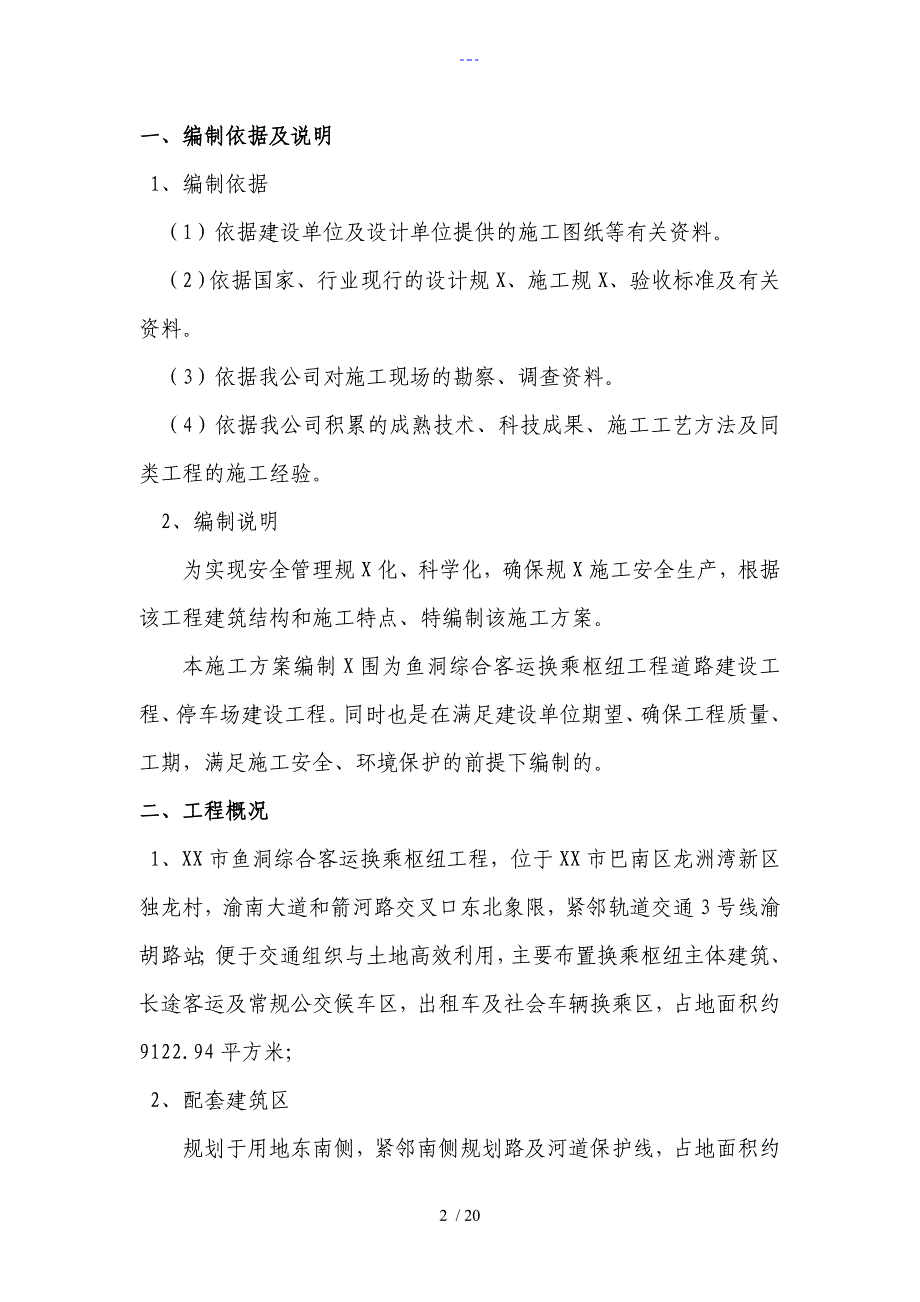 ---
一、编制依据及说明
1、编制依据
（1）依据建设单位及设计单位提供的施工图纸等有关资料。
（2）依据国家、行业现行的设计规X、施工规X、验收标准及有关
资料。
（3）依据我公司对施工现场的勘察、调查资料。
（4）依据我公司积累的成熟技术、科技成果、施工工艺方法及同
类工程的施工经验。
2、编制说明
为实现安全管理规X化、科学化，确保规X施工安全生产，根据
该工程建筑结构和施工特点、特编制该施工方案。
本施工方案编制X围为鱼洞综合客运换乘枢纽工程道路建设工
程、停车场建设工程。同时也是在满足建设单位期望、确保工程质量、
工期，满足施工安全、环境保护的前提下编制的。
二、工程概况
1、XX市鱼洞综合客运换乘枢纽工程，位于XX市巴南区龙洲湾新区
独龙村，渝南大道和箭河路交叉口东北象限，紧邻轨道交通3号线渝
胡路站；便于交通组织与土地高效利用，主要布置换乘枢纽主体建筑、
长途客运及常规公交侯车区，出租车及社会车辆换乘区，占地面积约
9122.94平方米；
2、配套建筑区
规划于用地东南侧，紧邻南侧规划路及河道保护线，占地面积约
2 / 20